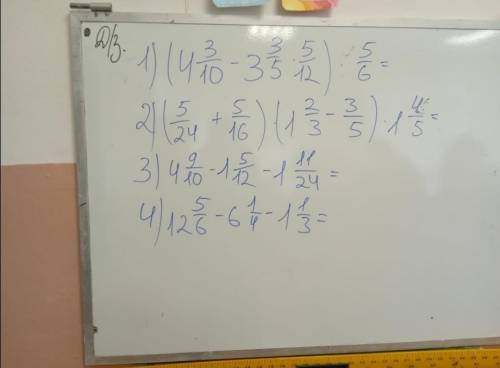 Д/з.
1) (4 3/10 - 3 3/5 · 5/12) : 5/6 =
2) (5/24 + 5/16) · (1 2/3 - 3/5) · 1 4/5 =
3) 4 9/10 - 1 5/12 - 1 11/24 =
4) 12 5/6 - 6 1/4 - 1 1/3 =